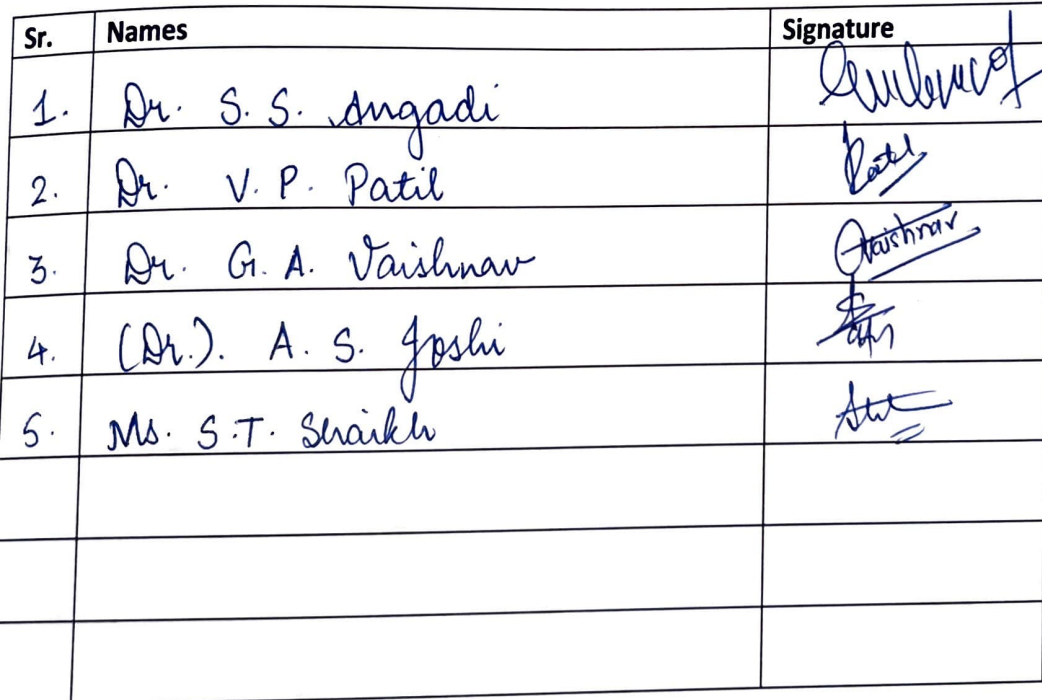 Sr. Names Signature
1. Dr. S. S. Angadi
2. Dr. V. P. Patil Patil
3. Dr. G. A. Vaishnav GVaishnav
4. (Dr.). A. S. Joshi
5. Ms. S.T. Shaikh